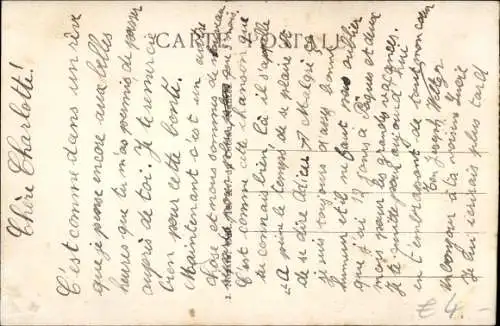 Chère Charlotte!
C'est comme dans un rêve
que je pense encore aux belles
heures que tu m'as permis de passer
auprès de toi. Je te remercie
bien pour cette bonté.
Maintenant c'est un autre
chose et nous sommes de nouveau
C'est comme cette chanson que
tu connais bien, là il s'appelle
"A peine le temps de se plaire et
de se dire Adieu". Malgré ça
je suis toujours d'une bonne
humeur et il ne faut pas oublier
que j'ai 12 jours à Pâques et deux
mois pour les grandes vacances.
Je te quitte pour aujourd'hui
en t'embrassant de tout mon cœur
Ton
Un bonjour à la
Je lui écrirais plus tard
CARTE POSTALE
£ 4.-